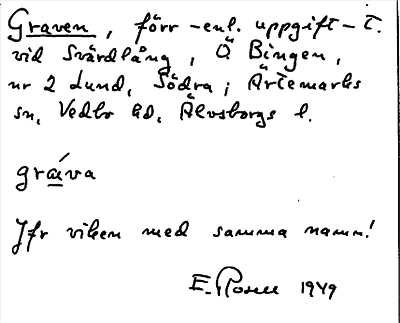 Graven, förr -enl. uppgift- t.
vid Svärdlång, Ö Bingen,
nr 2 Lund, Södra; Ärtemarks
sn, Vedbo hd, Älvsborgs l.
gráva
Jfr viken med samma namn!
E. Rosell 1949